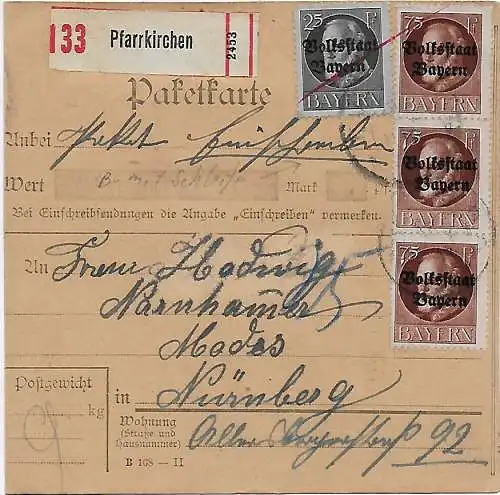 133 Pfarrkirchen 2453
25 Pf
Volksstaat
Bayern
BAYERN
75 Pf
Volksstaat
Bayern
BAYERN
75 Pf
Volksstaat
Bayern
BAYERN
75 Pf
Volksstaat
Bayern
BAYERN
Paketkarte
Anbei Paket
Wert Mark Pf
Bei Einschreibsendungen die Angabe „Einschreiben" vermerken.
An Hedwig
Narnhamer
Modes
in Nürnberg
Postgewicht
kg
Wohnung
(Straße und
Hausnummer)
92
B 168 — II